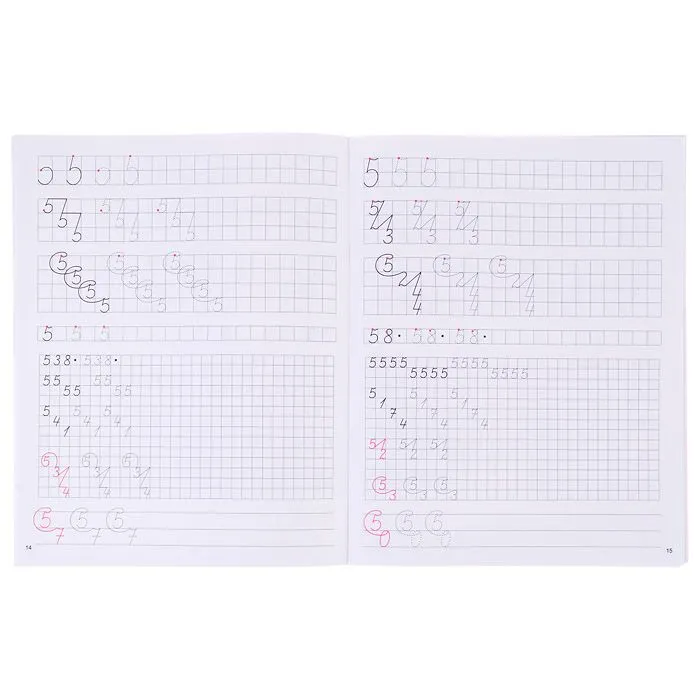 5 5 5
5 5 5 5 5 5 5 5 5
5 5 5 5 5 5 5 5 5 5 5 5
5 5 5
538· 538·
55 55
55 55
5 5 5
4 4 4
1 1 1
5 5 5
3 3 3
4 4 4
5 5 5
7 7 7
14
5 5 5
5 5 5
1 1 1
3 3 3
5 5 5
2 2 2
4 4 4
4 4 4
58· 58· 58·
5555 5555
5555 5555
5 5 5
1 1 1
7 7 7
4 4 4
5 5 5
1 1 1
2 2 2
5 5 5
3 3 3
5 5 5
0 0 0
15